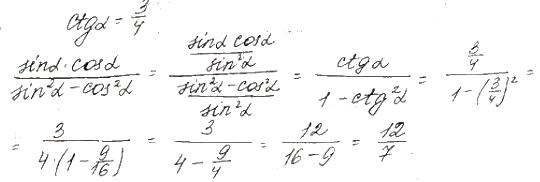 ctgα = 3/4
(sinα·cosα)/(sin²α − cos²α) = ((sinα cosα)/(sin²α))/((sin²α − cos²α)/(sin²α)) = (ctgα)/(1 − ctg²α) = (3/4)/(1 − (3/4)²) =
= 3/(4·(1 − 9/16)) = 3/(4 − 9/4) = 12/(16 − 9) = 12/7